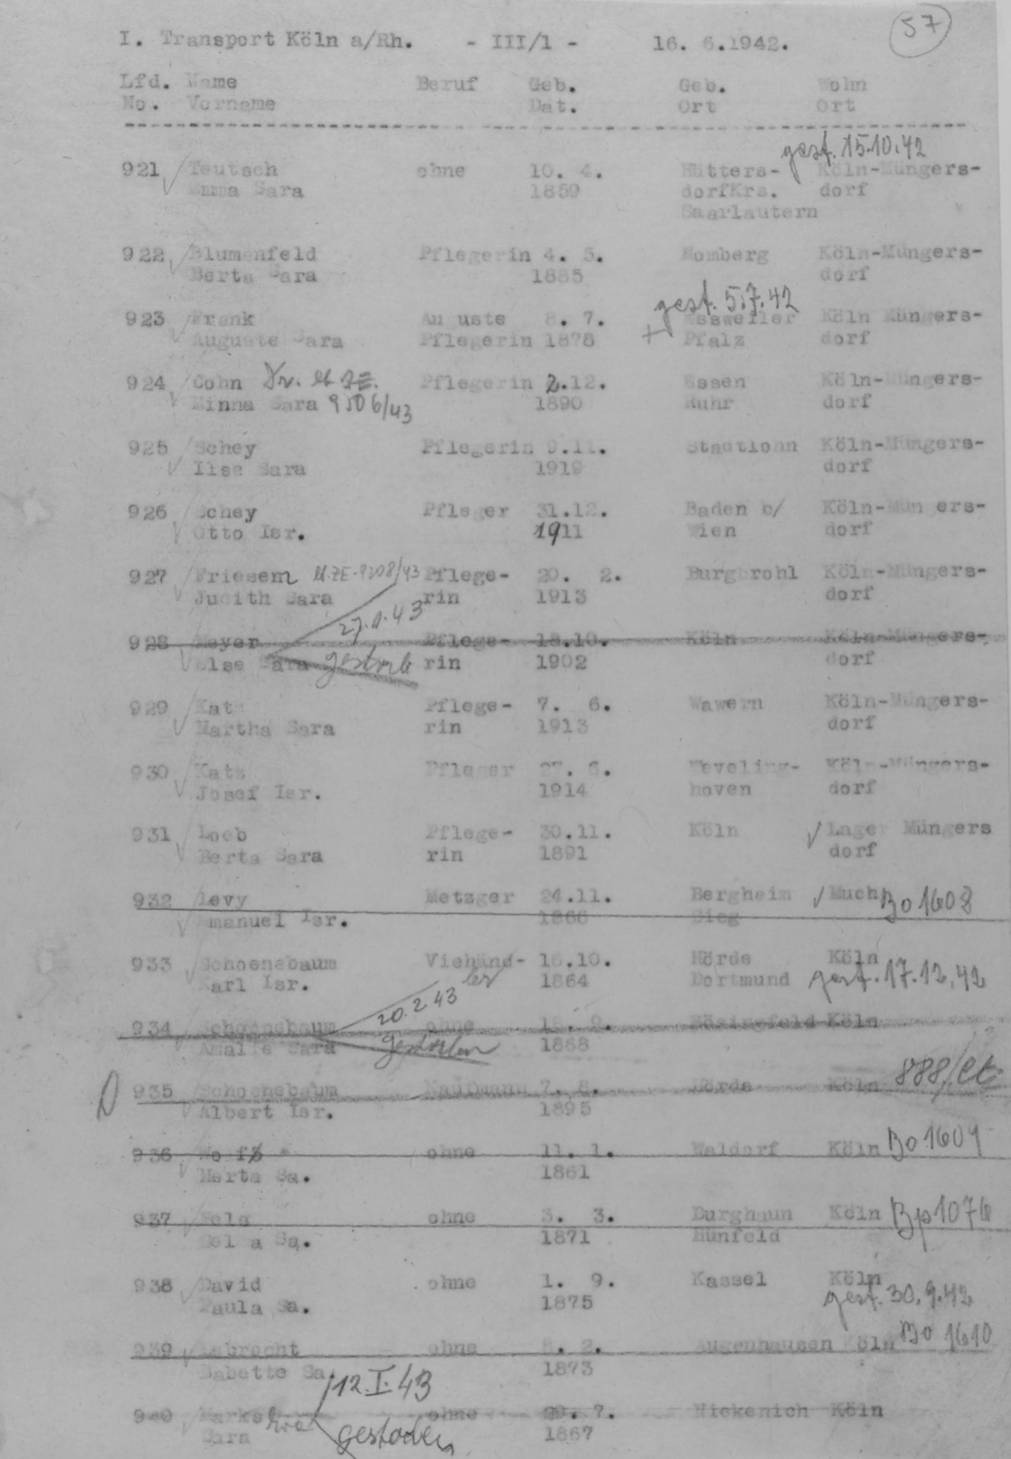 57
I. Transport Köln a/Rh. - III/1 - 16. 6.1942.
Lfd. Name Beruf Geb. Geb. Wohn
No. Vorname Dat. Ort Ort
gest. 15.10.42
921 Teutsch ohne 10. 4. Hütters- Köln-Müngers-
Emma Sara 1859 dorfKrs. dorf
Saarlautern
922 Blumenfeld Pflegerin 4. 5. Homberg Köln-Müngers-
Berta Sara 1885 dorf
gest. 5.7.42
923 Frank Au uste 8. 7. Köln Müngers-
Auguste Sara Pflegerin 1878 Pfalz dorf
924 Cohn Pflegerin 2.12. Essen Köln-Müngers-
Minna Sara 9506/43 1890 Ruhr dorf
925 Schey Pflegerin 9.11. Stadtlohn Köln-Müngers-
Ilse Sara 1919 dorf
926 Schey Pfleger 31.12. Baden b/ Köln-Mün ers-
Otto Isr. 1911 Wien dorf
927 Friesem Pflege- 20. 2. Burgbrohl Köln-Müngers-
Judith Sara rin 1913 dorf
27.1.43
928 Meyer Pflege- 18.10. Köln Köln-Müngers-
Else Sara rin 1902 dorf
929 Kat Pflege- 7. 6. Wawern Köln-Müngers-
Martha Sara rin 1913 dorf
930 Katz Pfleger 27. 6. Weveling- Köln-Müngers-
Josef Isr. 1914 hoven dorf
931 Loeb Pflege- 30.11. Köln Lage Müngers
Berta Sara rin 1891 dorf
932 Levy Metzger 24.11. Bergheim Much Bo 1608
Emanuel Isr. 1866 Sieg
933 Schoenebaum Viehänd- 16.10. Hörde Köln
Karl Isr. ler 1864 Dortmund gest. 17.12.42
20.2.43
934 Schoenebaum ohne 18. 9. Bösingfeld Köln
Amalie Sara gestorben 1868
935 Schoenebaum Kaufmann 7. 8. Hörde Köln
Albert Isr. 1895
936 ohne 11. 1. Waldorf Köln Bo 1609
Marta Sa. 1861
937 ohne 3. 3. Burghaun Köln Bp 1076
Sa. 1871 Hünfeld
938 David ohne 1. 9. Kassel Köln
Paula Sa. 1875 gest. 30.9.42
939 ohne 8. 2. Köln Bo 1610
Babette Sa. 1873
12.I.43
940 ohne 7. Nickenich Köln
Sara gestorben 1867